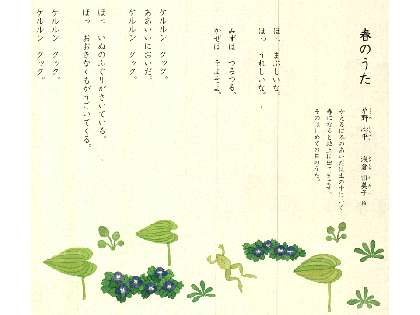 春のうた
草野 心平
かえるは冬のあいだは土の中にいて
春になると地上に出てきます。
そのはじめての日のうた。
ほっ まぶしいな。
ほっ うれしいな。
みずは つるつる。
かぜは そよそよ。
ケルルン クック。
ああいいにおいだ。
ケルルン クック。
ほっ いぬのふぐりがさいている。
ほっ おおきなくもがうごいてくる。
ケルルン クック。
ケルルン クック。